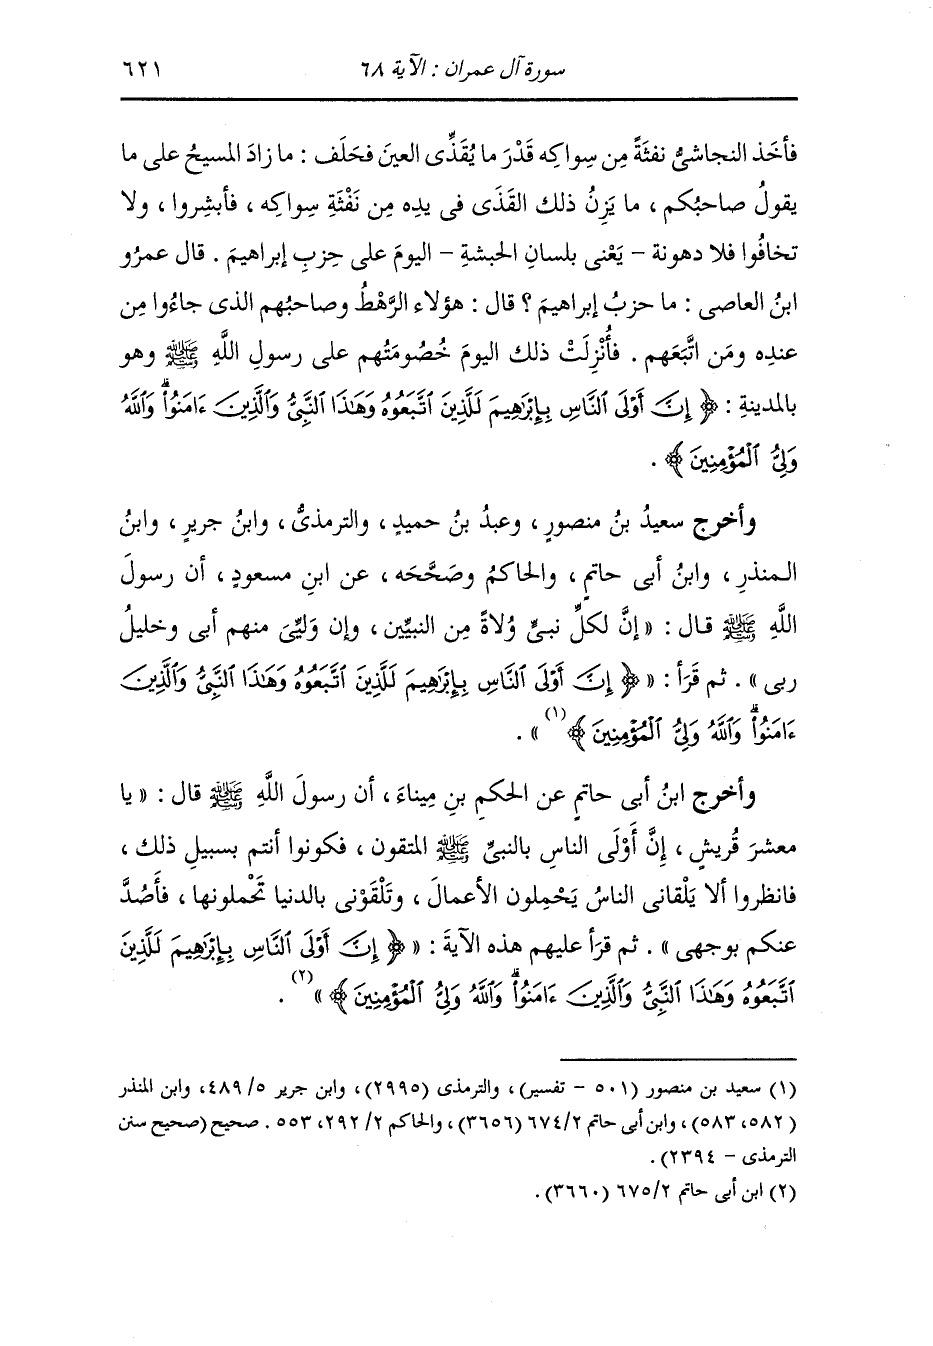 سورة آل عمران : الآية ٦٨ ٦٢١
فأخَذ النجاشىُّ نفثَةً مِن سِواكِه قَدْرَ ما يُقَذِّى العينَ فحَلَف : ما زادَ المسيحُ على ما
يقولُ صاحبُكم ، ما يَزِنُ ذلك القَذَى فى يدِه مِن نَفْثَةِ سِواكِه ، فأبشِروا ، ولا
تخافُوا فلا دهونة – يَعْنى بلسانِ الحبشةِ – اليومَ على حِزبِ إبراهيمَ . قال عمرُو
ابنُ العاصى : ما حزبُ إبراهيمَ ؟ قال : هؤلاء الرَّهْطُ وصاحبُهم الذى جاءُوا مِن
عندِه ومَن اتَّبَعَهم . فأُنْزِلَتْ ذلك اليومَ خُصُومَتُهم على رسولِ اللَّهِ ﷺ وهو
بالمدينةِ : ﴿ إِنَّ أَوْلَى ٱلنَّاسِ بِإِبْرَٰهِيمَ لَلَّذِينَ ٱتَّبَعُوهُ وَهَٰذَا ٱلنَّبِىُّ وَٱلَّذِينَ ءَامَنُوا۟ ۗ وَٱللَّهُ
وَلِىُّ ٱلْمُؤْمِنِينَ ﴾ .
وأخرج سعيدُ بنُ منصورٍ ، وعبدُ بنُ حميدٍ ، والترمذىُّ ، وابنُ جريرٍ ، وابنُ
المنذرِ ، وابنُ أبى حاتمٍ ، والحاكمُ وصَحَّحَه ، عن ابنِ مسعودٍ ، أن رسولَ
اللَّهِ ﷺ قال : « إنَّ لكلِّ نبىٍّ وُلاةً مِن النبيِّين ، وإن وَلِيِّىَ منهم أبى وخليلُ
ربى » . ثم قرَأ : « ﴿ إِنَّ أَوْلَى ٱلنَّاسِ بِإِبْرَٰهِيمَ لَلَّذِينَ ٱتَّبَعُوهُ وَهَٰذَا ٱلنَّبِىُّ وَٱلَّذِينَ
ءَامَنُوا۟ ۗ وَٱللَّهُ وَلِىُّ ٱلْمُؤْمِنِينَ ﴾ (١) » .
وأخرج ابنُ أبى حاتمٍ عن الحكمِ بنِ مِيناءَ ، أن رسولَ اللَّهِ ﷺ قال : « يا
معشرَ قُريشٍ ، إنَّ أَوْلَى الناسِ بالنبىِّ ﷺ المتقون ، فكونوا أنتم بسبيلِ ذلك ،
فانظروا ألا يَلْقانى الناسُ يَحْمِلون الأعمالَ ، وتَلْقَوْنى بالدنيا تَحْملونها ، فأَصُدَّ
عنكم بوجهى » . ثم قرَأ عليهم هذه الآيةَ : « ﴿ إِنَّ أَوْلَى ٱلنَّاسِ بِإِبْرَٰهِيمَ لَلَّذِينَ
ٱتَّبَعُوهُ وَهَٰذَا ٱلنَّبِىُّ وَٱلَّذِينَ ءَامَنُوا۟ ۗ وَٱللَّهُ وَلِىُّ ٱلْمُؤْمِنِينَ ﴾ » (٢) .
(١) سعيد بن منصور (٥٠١ – تفسير) ، والترمذى (٢٩٩٥) ، وابن جرير ٥/ ٤٨٩، وابن المنذر
(٥٨٢، ٥٨٣) ، وابن أبى حاتم ٦٧٤/٢ (٣٦٥٦) ، والحاكم ٢/ ٢٩٢، ٥٥٣ . صحيح (صحيح سنن
الترمذى – ٢٣٩٤) .
(٢) ابن أبى حاتم ٦٧٥/٢ (٣٦٦٠) .